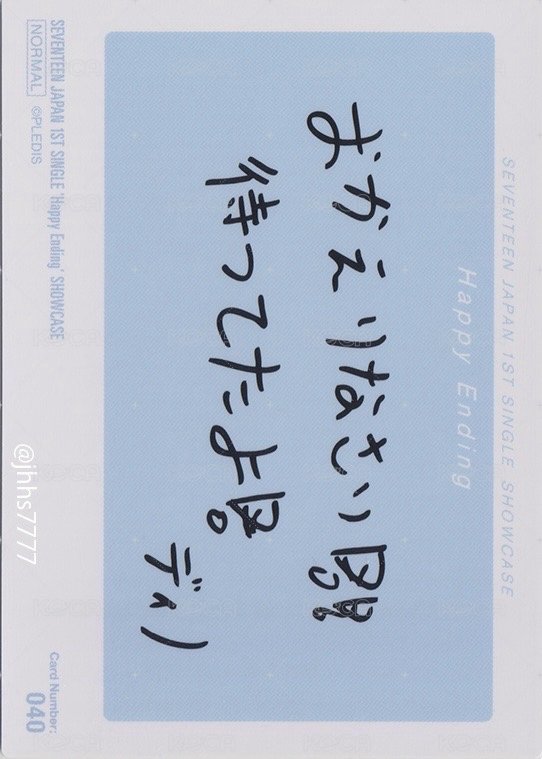 SEVENTEEN JAPAN 1ST SINGLE SHOWCASE
Happy Ending
おかえりなさい
待ってたよ
ディノ
SEVENTEEN JAPAN 1ST SINGLE 'Happy Ending' SHOWCASE
NORMAL ©PLEDIS
Card Number:
040
@jhhs7777